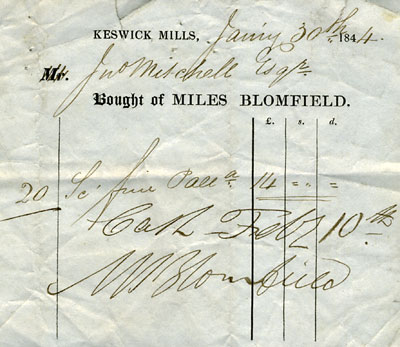 KESWICK MILLS, Janry 30th 1844.
Mr. Jno Mitchell Esqr.
Bought of MILES BLOMFIELD.
£. s. d.
20 Sc: fine a 14 = " =
Cash Feby 10th
M Blomfield